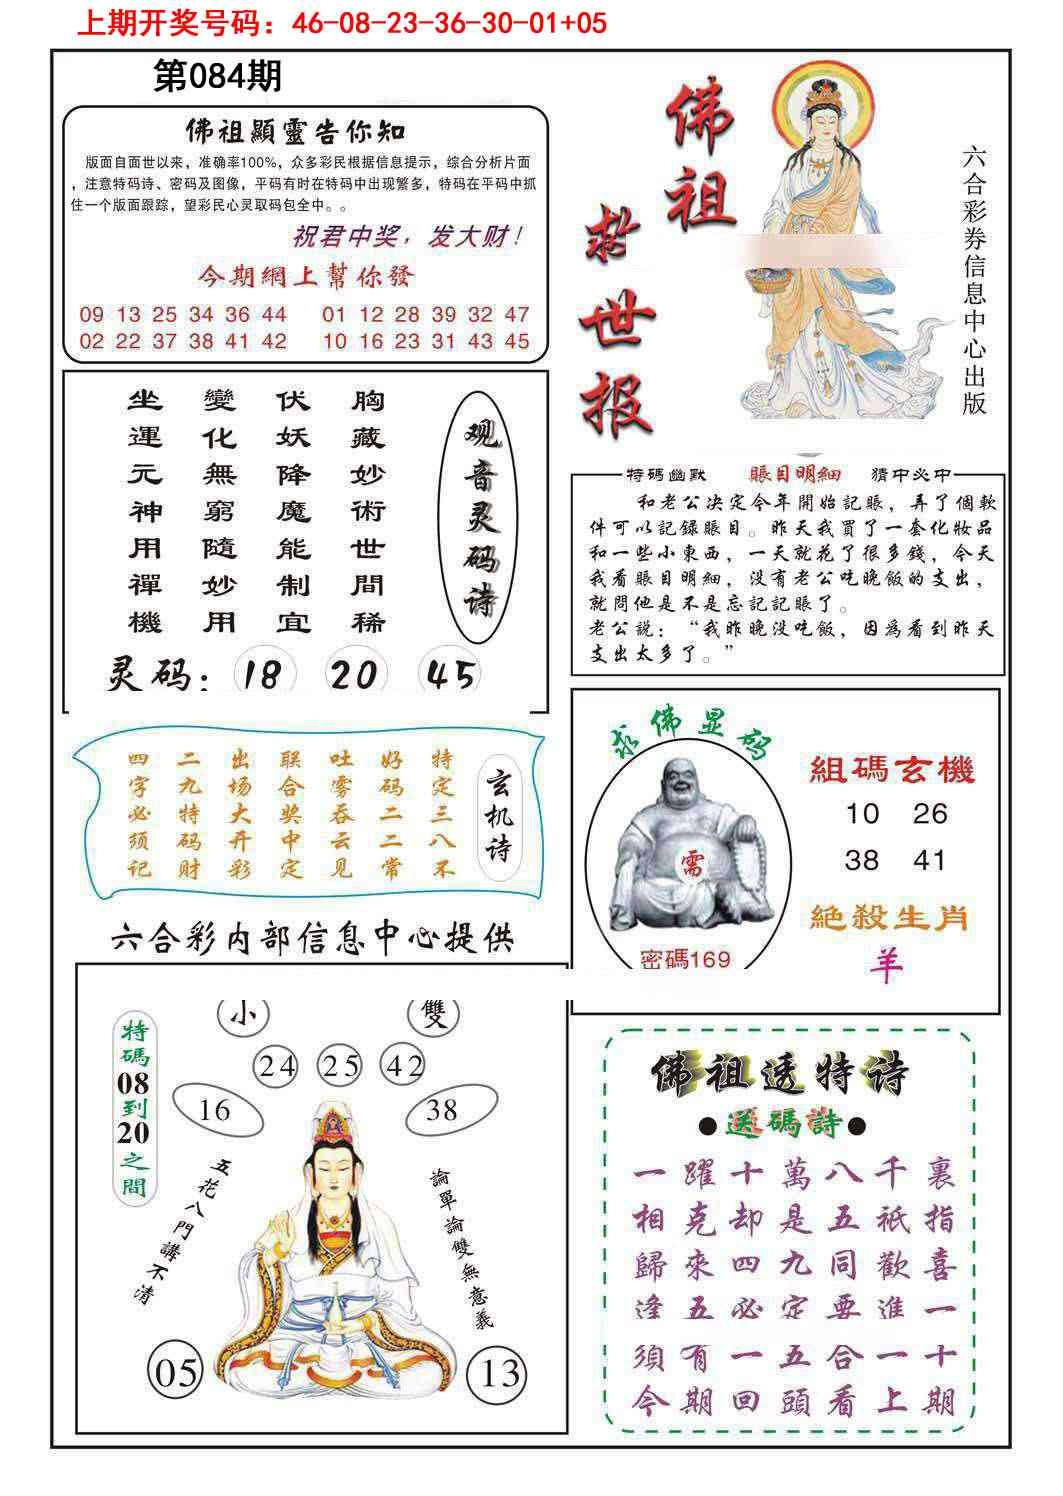 上期开奖号码：46-08-23-36-30-01+05
第084期
佛祖顯靈告你知
版面自面世以来，准确率100%，众多彩民根据信息提示，综合分析片面
，注意特码诗、密码及图像，平码有时在特码中出现繁多，特码在平码中抓
住一个版面跟踪，望彩民心灵取码包全中。。
祝君中奖，发大财！
今期網上幫你發
09 13 25 34 36 44 01 12 28 39 32 47
02 22 37 38 41 42 10 16 23 31 43 45
佛祖
救世报
六合彩券信息中心出版
胸藏妙術世間稀
伏妖降魔能制宜
變化無窮隨妙用
坐運元神用禪機
观音灵码诗
灵码：18 20 45
特碼幽默 賬目明細 猜中必中
和老公决定今年開始記賬，弄了個軟
件可以記録賬目。昨天我買了一套化妝品
和一些小東西，一天就花了很多錢，今天
我看賬目明細，没有老公吃晚飯的支出，
就問他是不是忘記記賬了。
老公説：“我昨晚没吃飯，因為看到昨天
支出太多了。”
玄机诗
特定三八不
好码二二常
吐雾吞云见
联合奖中定
出场大开彩
二九特码财
四字必须记
求佛显码
需
密碼169
組碼玄機
10 26
38 41
絶殺生肖
羊
六合彩内部信息中心提供
小 雙
24 25 42
16 38
特碼08到20之間
五花八門講不清
論單論雙無意義
05 13
佛祖透特诗
●送碼詩●
一躍十萬八千裏
相克却是五祇指
歸來四九同歡喜
逢五必定要進一
須有一五合一十
今期回頭看上期